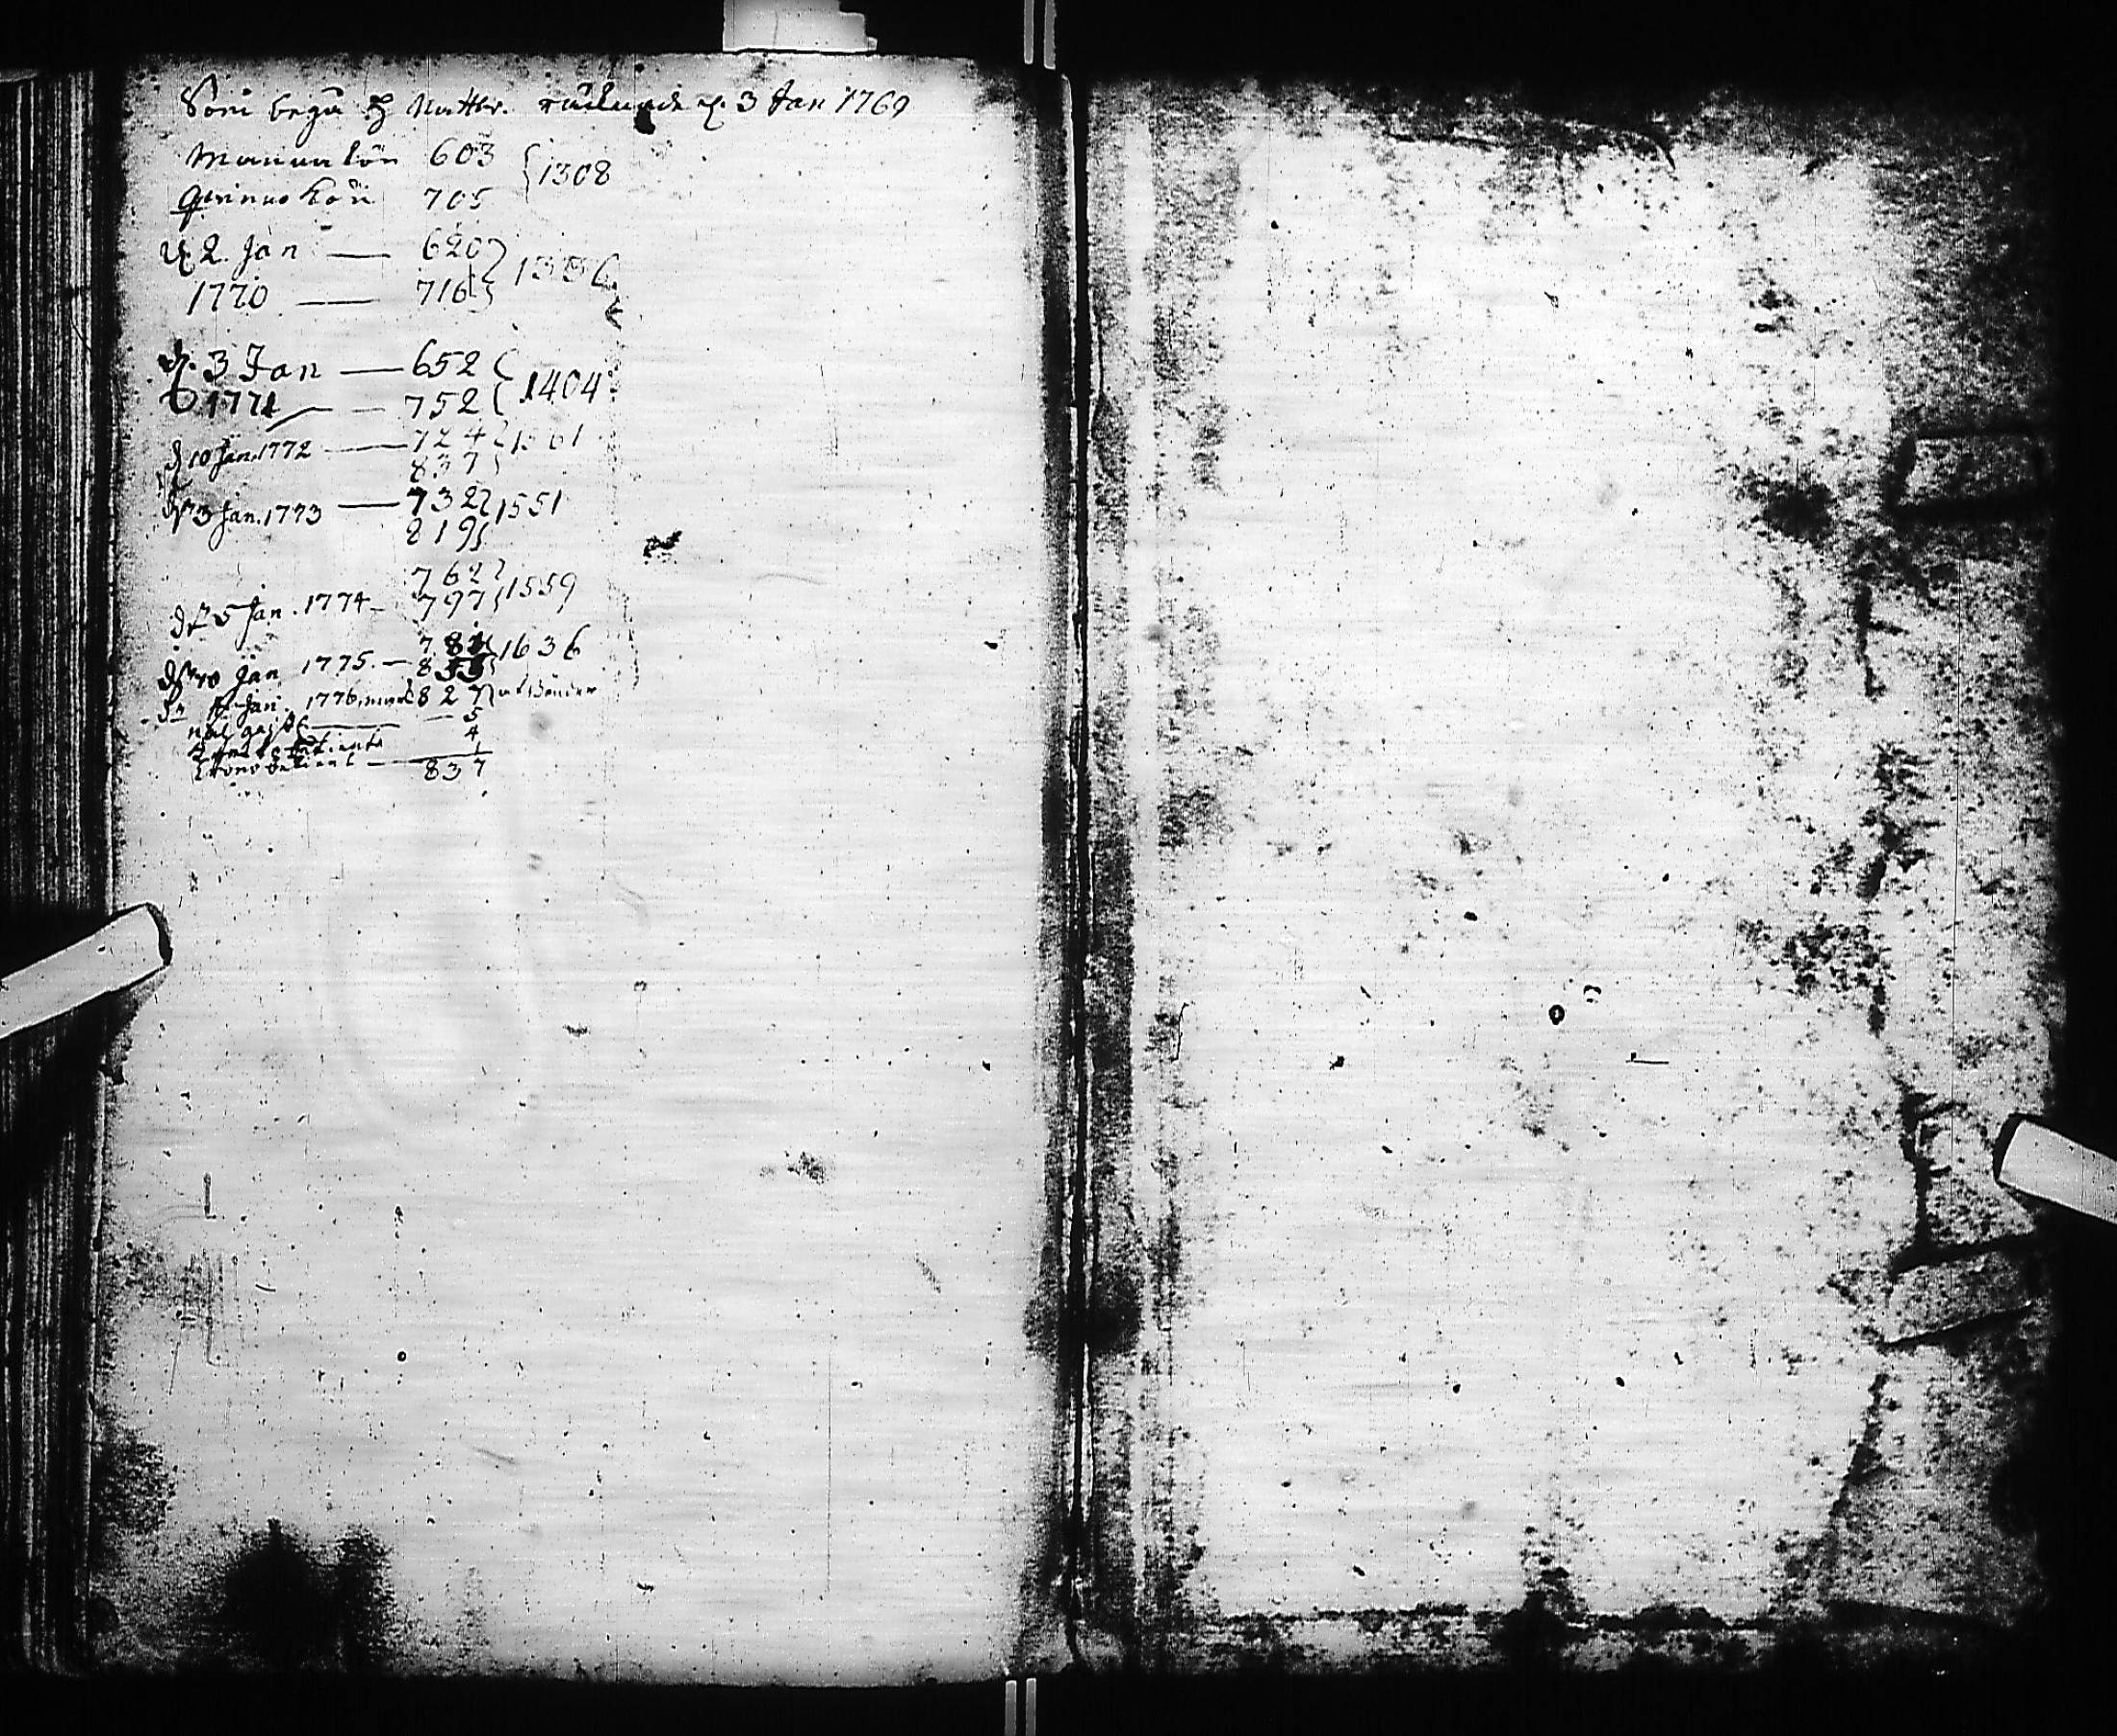 Som begå H Nattw. räknade d. 3 Jan 1769
Mannkön 603 } 1308
Qvinnokön 705
d. 2. Jan — 620 } 1336
1770 — 716
d. 3 Jan — 652 } 1404
1771 — 752
d 10 Jan. 1772 — 724 } 1561
837
d. 3 Jan. 1773 — 732 } 1551
819
762 } 1559
d. 5 Jan. 1774 — 797
78 } 1636
d. 10 Jan 1775. — 855
d. Jan. 1776 827
— 5
— 4
— 1
837